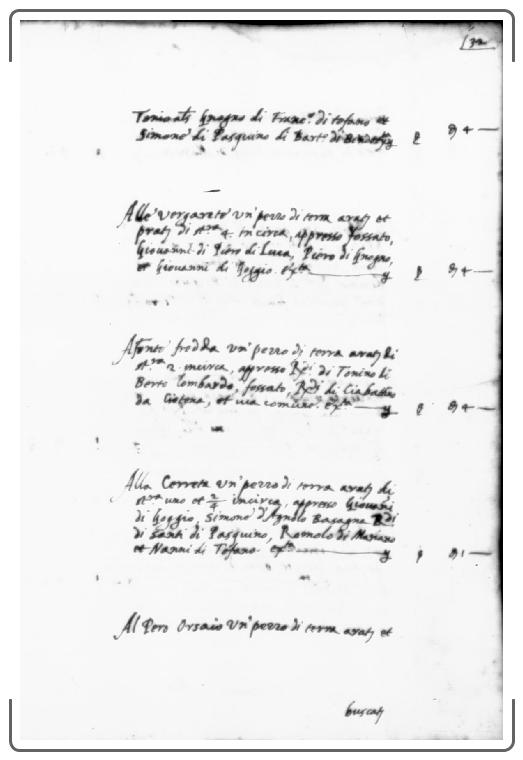 132
Toniati Gnogno di Franc.º di tofano et
Simone di Pasquino di Bart.º di
Alle vergarete un' pezzo di terra arati et
prati di st.ra 4. in circa, appresso fossato,
Giovanni di Piero di Luca, Piero di Gnogno,
et Giovanni di Goggio. exta
A fonte fredda un' pezzo di terra arati di
st.ra 2. incirca, appresso Rdi di Tonino di
Berto Lombardo, fossato, Rdi di Ciabattino
da Cetena, et via comune. exta
Alla Cerreta un' pezzo di terra arati di
st.ra uno et 2/4 incirca, appresso Giovani
di Goggio, Simone d'Agnolo Basagna Rdi
di Santi di Pasquino, Romolo di Mariano
et Nanni di Tofano. exta
Al Pero Orsaio un' pezzo di terra arati et
buscati